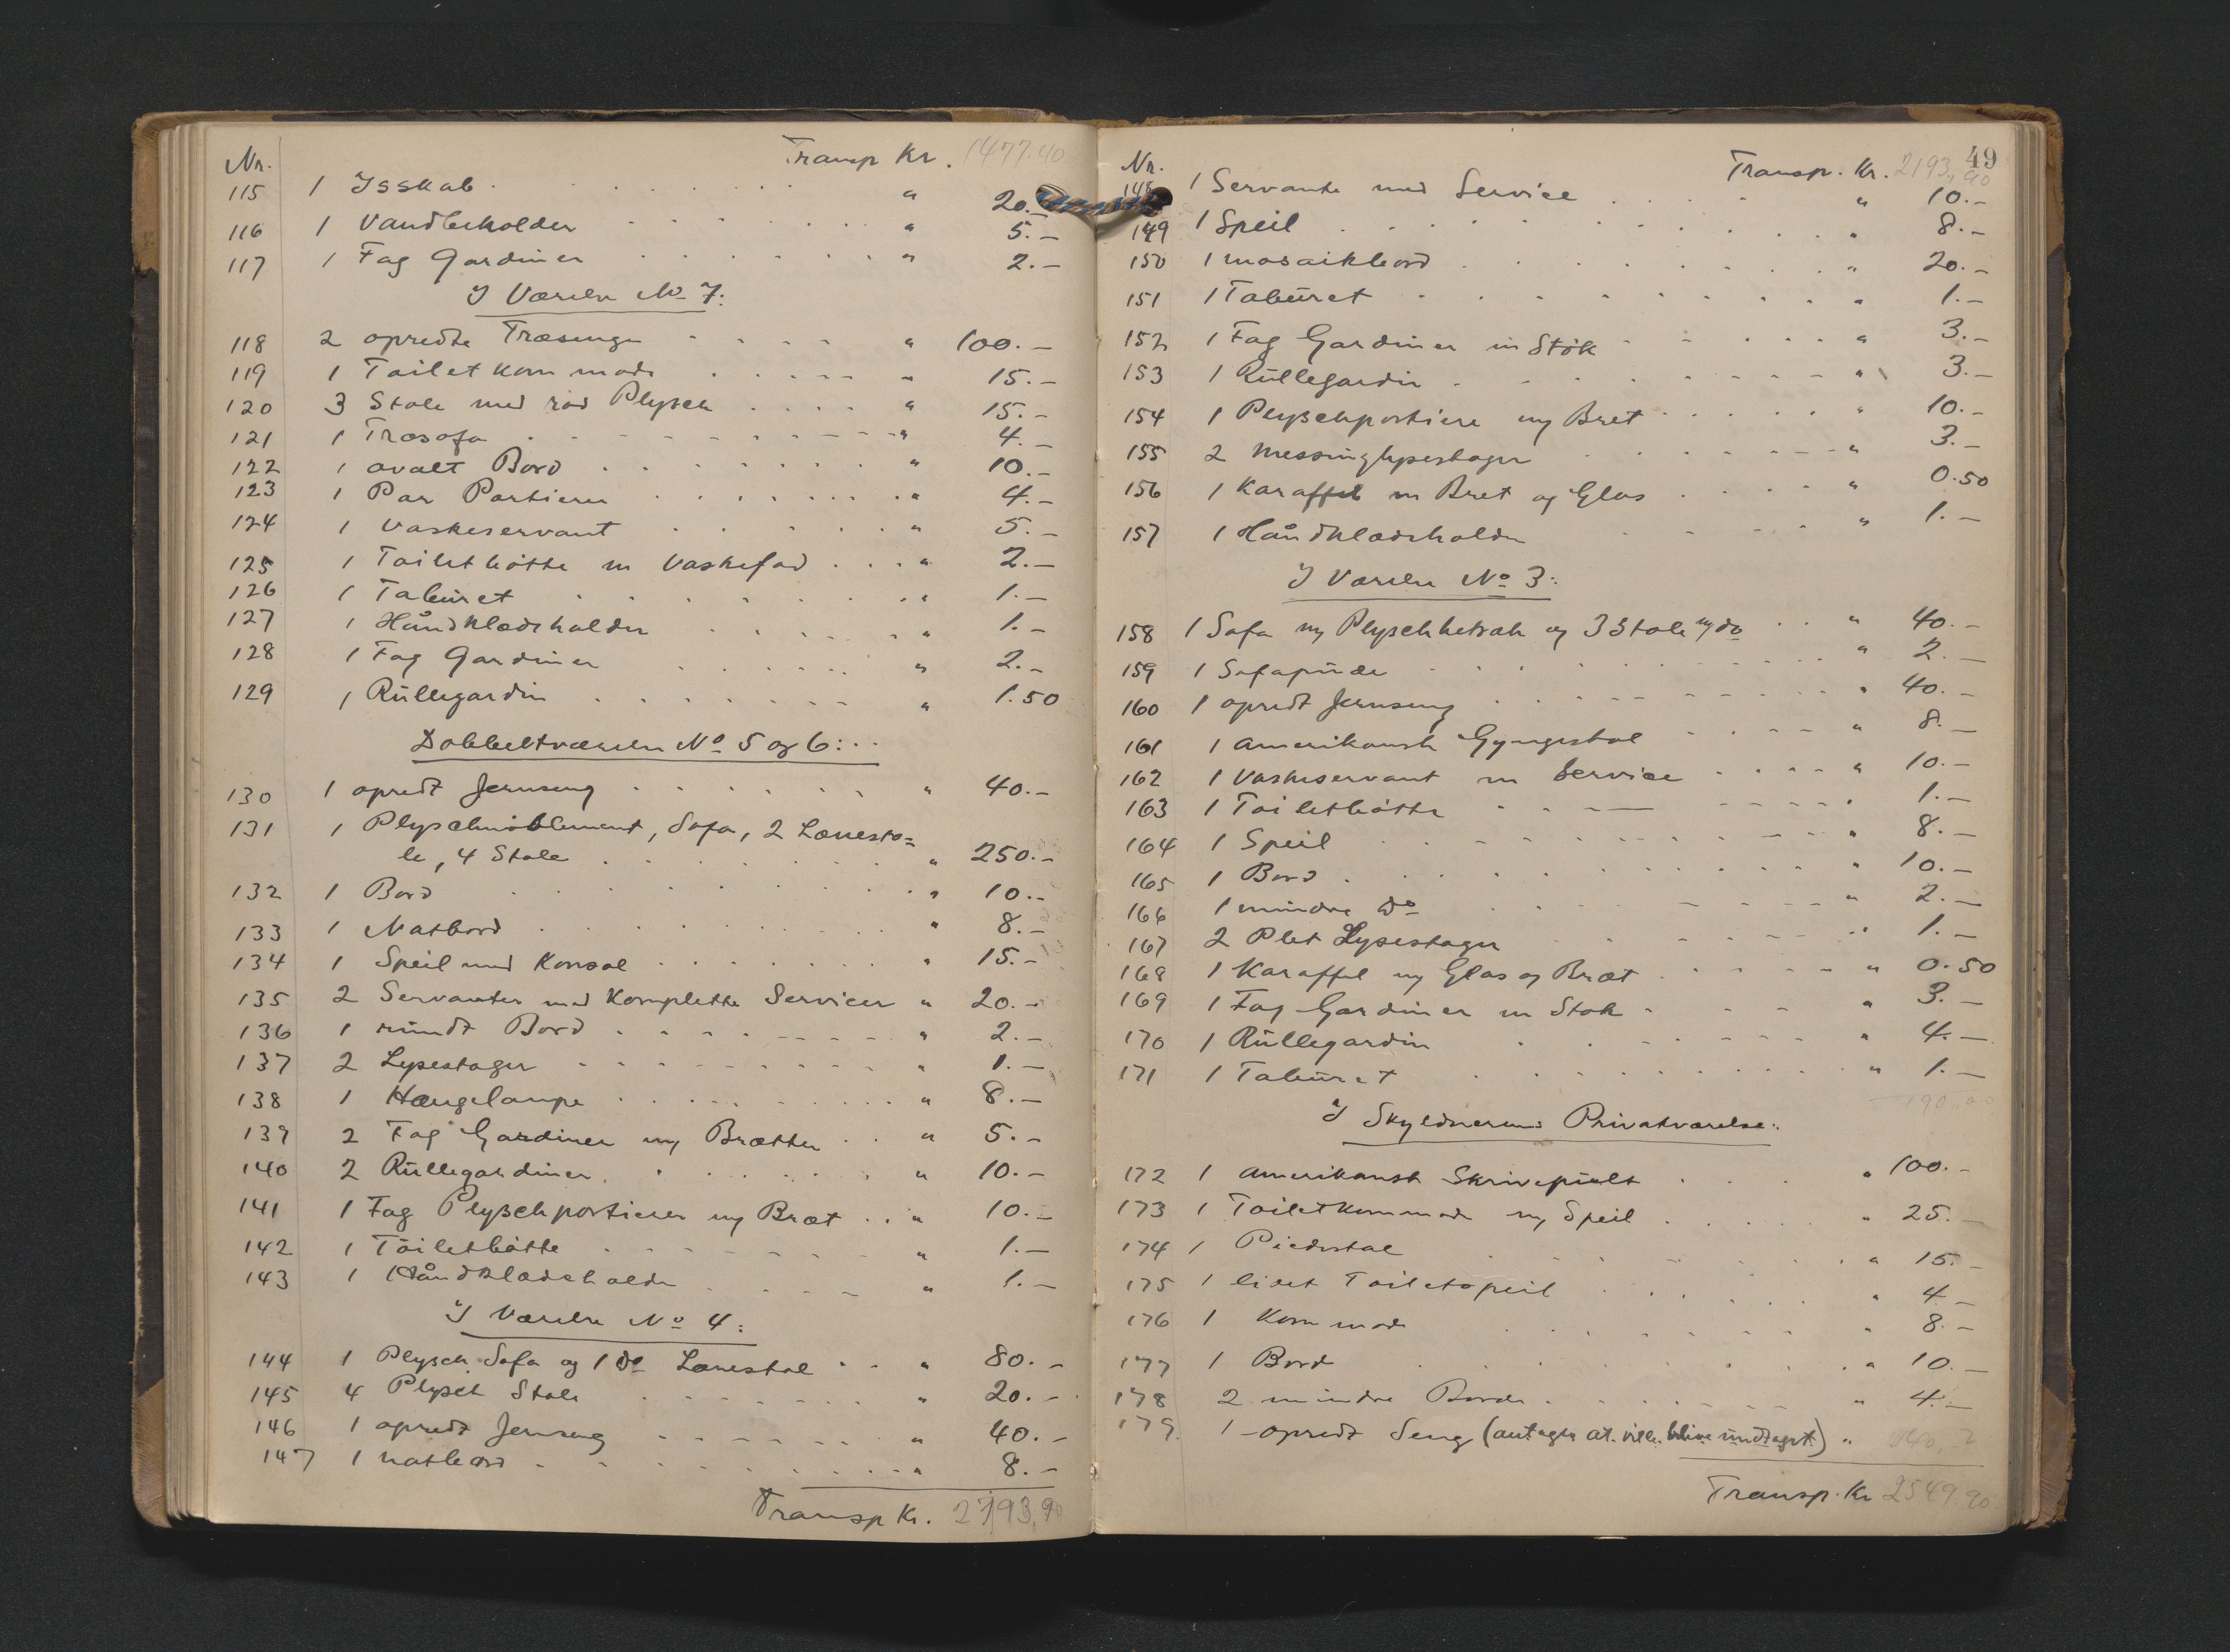 Nr. Transp Kr. 1477.40
115 1 Isskab . . . . . . . " 20.-
116 1 Vandbeholder . . . . . . " 5.-
117 1 Fag Gardiner . . . . . . . " 2.-
I Værelse No 7:
118 2 opredte Træsenge . . . . " 100.-
119 1 Toiletkommode . . . . . " 15.-
120 3 Stole med rød Plysch . . . . " 15.-
121 1 Træsofa . . . . . . . . . . " 4.-
122 1 ovalt Bord . . . . . . . " 10.-
123 1 Par Portierer . . . . . . . " 4.-
124 1 Vaskeservant . . . . . . " 5.-
125 1 Toiletbøtte m Vaskefad . . . " 2.-
126 1 Taburet . . . . . . . . " 1.-
127 1 Håndklædeholder . . . . . " 1.-
128 1 Fag Gardiner . . . . . . " 2.-
129 1 Rullegardin . . . . . . . " 1.50
Dobbeltværelse No 5 og 6:
130 1 opredt Jernseng . . . . . . " 40.-
131 1 Plyschmøblement, Sofa, 2 Lænesto=
le, 4 Stole . . . . . . . . " 250.-
132 1 Bord . . . . . . . . . . " 10.-
133 1 Natbord . . . . . . . . . " 8.-
134 1 Speil med Konsol . . . . . . . " 15.-
135 2 Servanter med komplette Servicer " 20.-
136 1 rundt Bord . . . . . . . . " 2.-
137 2 Lysestager . . . . . . . . . " 1.-
138 1 Hængelampe . . . . . . . . . " 8.-
139 2 Fag Gardiner m/ Brætter . . " 5.-
140 2 Rullegardiner . . . . . . " 10.-
141 1 Fag Plyschportierer m/ Bræt . . " 10.-
142 1 Toiletbøtte . . . . . . . " 1.-
143 1 Håndklædeholder . . . . " 1.-
I Værelse No 4:
144 1 Plysch Sofa og 1 do Lænestol . . " 80.-
145 4 Plysch Stole . . . . . . . " 20.-
146 1 opredt Jernseng . . . . . . " 40.-
147 1 natbord . . . . . . . . . " 8.-
Transp Kr. 2193,90
49
Nr. Transp. Kr. 2193,90
148 1 Servante med Service . . . . . " 10.-
149 1 Speil . . . . . . . . . . . " 8.-
150 1 mosaikbord . . . . . . . . . " 20.-
151 1 Taburet . . . . . . . . . . " 1.-
152 1 Fag Gardiner m Stok . . . . . " 3.-
153 1 Rullegardin . . . . . . . . " 3.-
154 1 Plyschportiere m/ Bret . . . . . . " 10.-
155 2 messinglysestager . . . . . . . " 3.-
156 1 Karaffel m Bret og Glas . . . . " 0.50
157 1 Håndklædeholder . . . . " 1.-
I Værelse No 3:
158 1 Sofa m/ Plyschbetræk og 3 Stole m/ do . . " 40.-
159 1 Sofapude . . . . . . . . . " 2.-
160 1 opredt Jernseng . . . . . . . . " 40.-
161 1 amerikansk Gyngestol . . . . . " 8.-
162 1 Vaskeservant m Service . . . . " 10.-
163 1 Toiletbøtte . . . . . . . . " 1.-
164 1 Speil . . . . . . . . . . " 8.-
165 1 Bord . . . . . . . . . . . " 10.-
166 1 mindre do . . . . . . . . " 2.-
167 2 Plet Lysestager . . . . . . . " 1.-
168 1 Karaffel m/ Glas og Bræt . . . . . " 0.50
169 1 Fag Gardiner m Stok . . . . " 3.-
170 1 Rullegardin . . . . . . . " 4.-
171 1 Taburet . . . . . . . . . . " 1.-
I Skyldnerens Privatværelse:
172 1 amerikansk Skrivepult . . . . " 100.-
173 1 Toiletkommode m/ Speil . . . . . " 25.-
174 1 Piedestal . . . . . . . . . " 15.-
175 1 lidet Toiletspeil . . . . . . " 4.-
176 1 Kommode . . . . . . . . " 8.-
177 1 Bord . . . . . . . . . . " 10.-
178 2 mindre Borde . . . . . . . " 4.-
179. 1 opredt Seng (antages at ville blive undtaget) "
Transp. Kr 2549.90